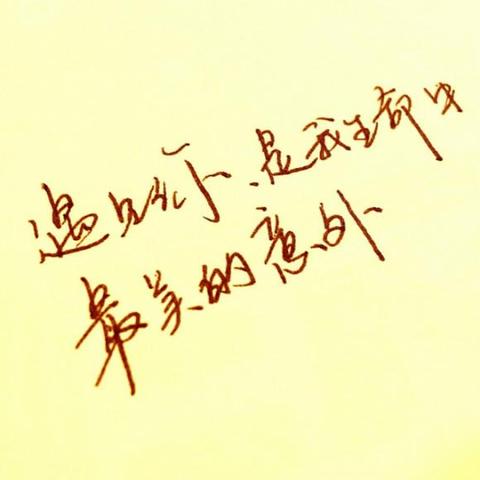 遇见你,是我生命中
最美的意外